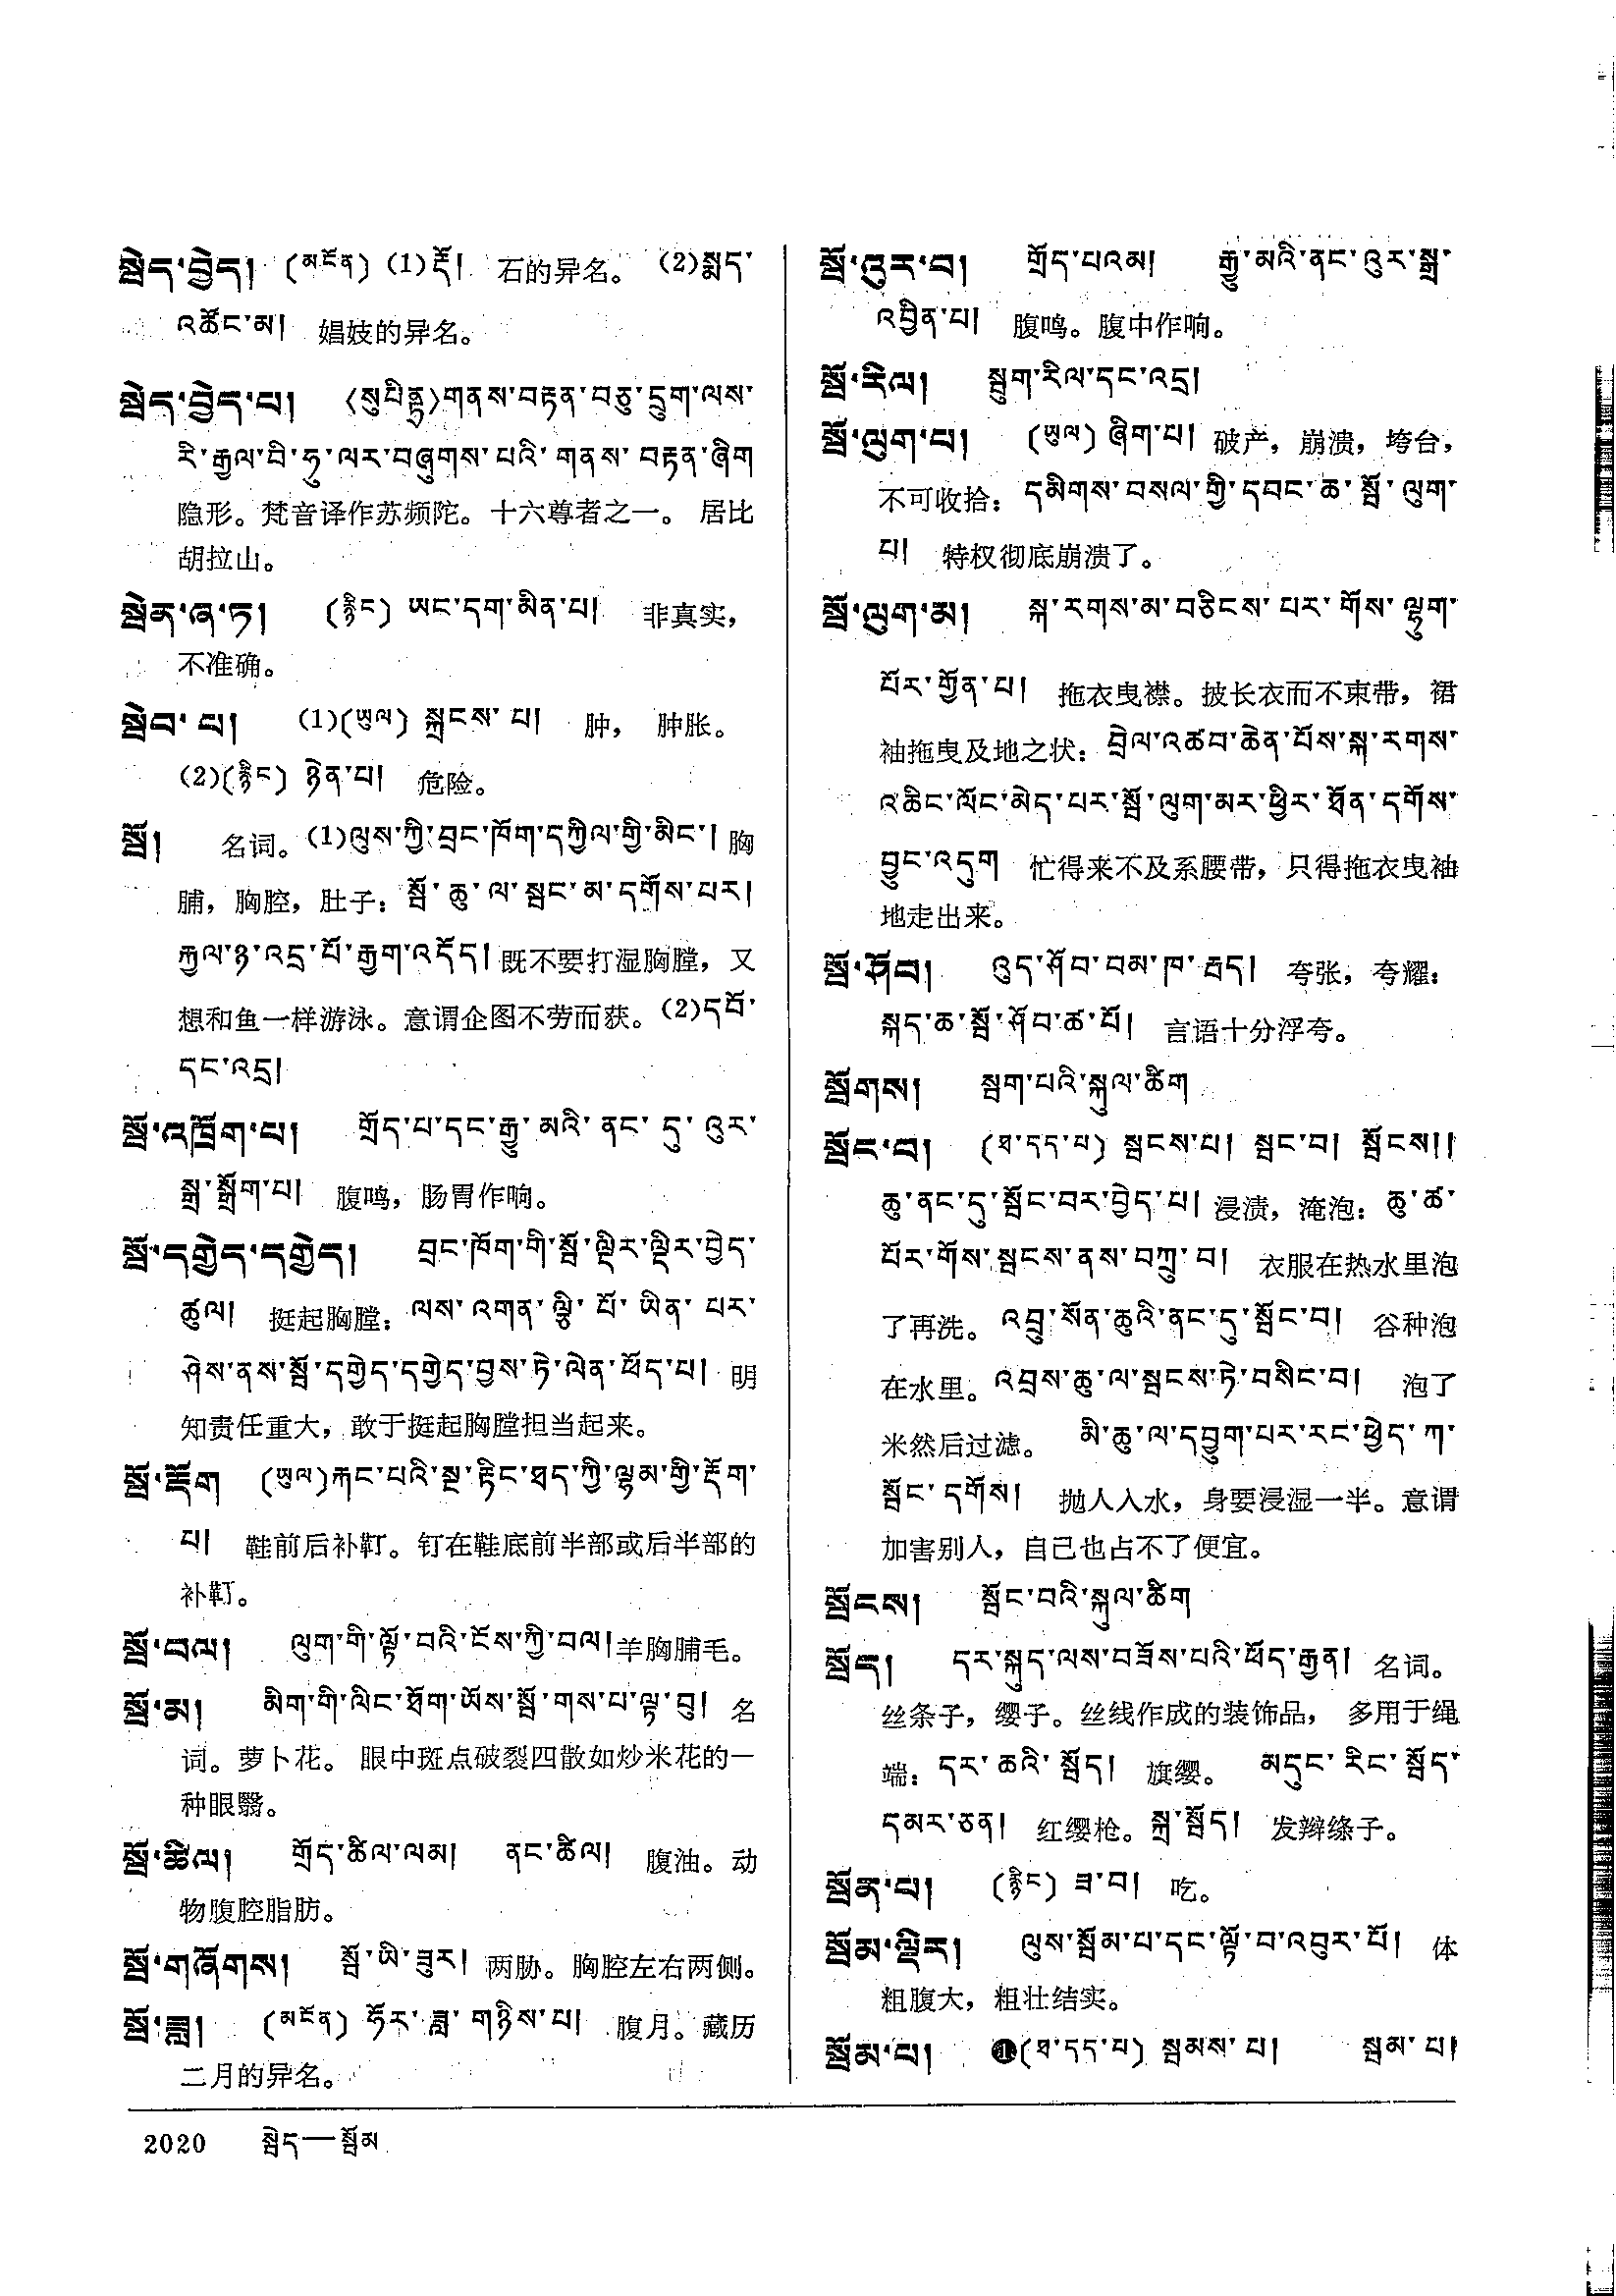 སྦེད་བྱེད། (མངོན) (1)རྡོ། 石的异名。 (2)སྨད་
འཚོང་མ། 娼妓的异名。
སྦེད་བྱེད་པ། 〈སུཔིནྡ〉གནས་བརྟན་བཅུ་དྲུག་ལས་
རི་རྒྱལ་བི་ཧུ་ལར་བཞུགས་པའི་གནས་བརྟན་ཞིག
隐形。梵音译作苏频陀。十六尊者之一。 居比
胡拉山。
སྦེན་ཞ་ཏ། (རྙིང) ཡང་དག་མིན་པ། 非真实，
不准确。
སྦེབ་པ། (1)(ཡུལ) སྐྲངས་པ། 肿， 肿胀。
(2)(རྙིང) ཉེན་པ། 危险。
སྦོ། 名词。(1)ལུས་ཀྱི་བྲང་ཁོག་དཀྱིལ་གྱི་མིང་། 胸
脯，胸腔，肚子：སྦོ་ཆུ་ལ་སྦང་མ་དགོས་པར།
རྐྱལ་ཉ་འདྲ་པོ་རྒྱག་འདོད། 既不要打湿胸膛，又
想和鱼一样游泳。意谓企图不劳而获。(2)དབོ་
དང་འདྲ།
སྦོ་འཁྲོག་པ། གྲོད་པ་དང་རྒྱུ་མའི་ནང་དུ་འུར་
སྒྲ་སྒྲོག་པ། 腹鸣，肠胃作响。
སྦོ་དགྱེད་དགྱེད། བྲང་ཁོག་གི་སྦོ་ལྡིར་ལྡིར་བྱེད་
ཚུལ། 挺起胸膛：ལས་འགན་ལྕི་པོ་ཡིན་པར་
ཤེས་ནས་སྦོ་དགྱེད་དགྱེད་བྱས་ཏེ་ལེན་ཕོད་པ། 明
知责任重大，敢于挺起胸膛担当起来。
སྦོ་རྡོག (ཡུལ)རྐང་པའི་སྔ་རྟིང་ཐད་ཀྱི་ལྷམ་གྱི་རྡོག་
པ། 鞋前后补靪。钉在鞋底前半部或后半部的
补靪。
སྦོ་བལ། ལུག་གི་ལྟོ་བའི་ངོས་ཀྱི་བལ། 羊胸脯毛。
སྦོ་མ། མིག་གི་ལིང་ཐོག་ཡོས་སྦོ་གས་པ་ལྟ་བུ། 名
词。萝卜花。 眼中斑点破裂四散如炒米花的一
种眼翳。
སྦོ་ཚིལ། གྲོད་ཚིལ་ལམ། ནང་ཚིལ། 腹油。动
物腹腔脂肪。
སྦོ་གཞོགས། སྦོ་ཡི་ཟུར། 两胁。胸腔左右两侧。
སྦོ་ཟླ། (མངོན) ཧོར་ཟླ་གཉིས་པ། 腹月。藏历
二月的异名。
སྦོ་འུར་བ། གྲོད་པའམ། རྒྱུ་མའི་ནང་འུར་སྒྲ་
འབྱིན་པ། 腹鸣。腹中作响。
སྦོ་རིལ། སྦུག་རིལ་དང་འདྲ།
སྦོ་ལུག་པ། (ཡུལ) ཞིག་པ། 破产，崩溃，垮台，
不可收拾：དམིགས་བསལ་གྱི་དབང་ཆ་སྦོ་ལུག་
པ། 特权彻底崩溃了。
སྦོ་ལུག་མ། སྐ་རགས་མ་བཅིངས་པར་གོས་ལྷུག་
པོར་གྱོན་པ། 拖衣曳襟。披长衣而不束带，裙
袖拖曳及地之状：བྲེལ་འཚབ་ཆེན་པོས་སྐ་རགས་
འཆིང་ལོང་མེད་པར་སྦོ་ལུག་མར་ཕྱིར་ཐོན་དགོས་
བྱུང་འདུག 忙得来不及系腰带，只得拖衣曳袖
地走出来。
སྦོ་ཤོབ། འུད་ཤོབ་བམ་ཁ་རྦད། 夸张，夸耀：
སྐད་ཆ་སྦོ་ཤོབ་ཚ་པོ། 言语十分浮夸。
སྦོགས། སྦག་པའི་སྐུལ་ཚིག
སྦོང་བ། (ཐ་དད་པ) སྦངས་པ། སྦང་བ། སྦོངས།།
ཆུ་ནང་དུ་སྦོང་བར་བྱེད་པ། 浸渍，淹泡：ཆུ་ཚ་
པོར་གོས་སྦངས་ནས་བཀྲུ་བ། 衣服在热水里泡
了再洗。འབྲུ་སོན་ཆུའི་ནང་དུ་སྦོང་བ། 谷种泡
在水里。འབྲས་ཆུ་ལ་སྦངས་ཏེ་བསིང་བ། 泡了
米然后过滤。 མི་ཆུ་ལ་དབྱུག་པར་རང་ཕྱེད་ཀ་
སྦོང་དགོས། 抛人入水，身要浸湿一半。意谓
加害别人，自己也占不了便宜。
སྦོངས། སྦོང་བའི་སྐུལ་ཚིག
སྦོད། དར་སྐུད་ལས་བཟོས་པའི་ཕོད་རྒྱན། 名词。
丝条子，缨子。丝线作成的装饰品， 多用于绳
端：དར་ཆའི་སྦོད། 旗缨。 མདུང་རིང་སྦོད་
དམར་ཅན། 红缨枪。སྐྲ་སྦོད། 发辫绦子。
སྦོན་པ། (རྙིང) ཟ་བ། 吃。
སྦོམ་ལྡིར། ལུས་སྦོམ་པ་དང་ལྟོ་བ་འབུར་པོ། 体
粗腹大，粗壮结实。
སྦོམ་པ། ❶(ཐ་དད་པ) སྦམས་པ། སྦམ་པ།
2020 སྦེད—སྦོམ